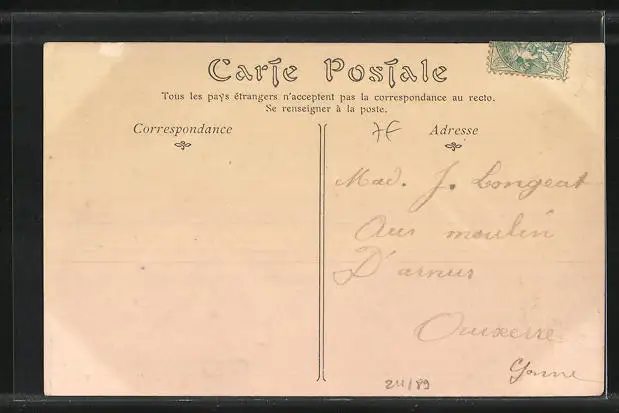 Carte Postale
Tous les pays étrangers n'acceptent pas la correspondance au recto.
Se renseigner à la poste.
Correspondance
7€
Adresse
Mad. J. Longeat
Aux moulin
D'arnus
Auxerre
Yonne
211/89